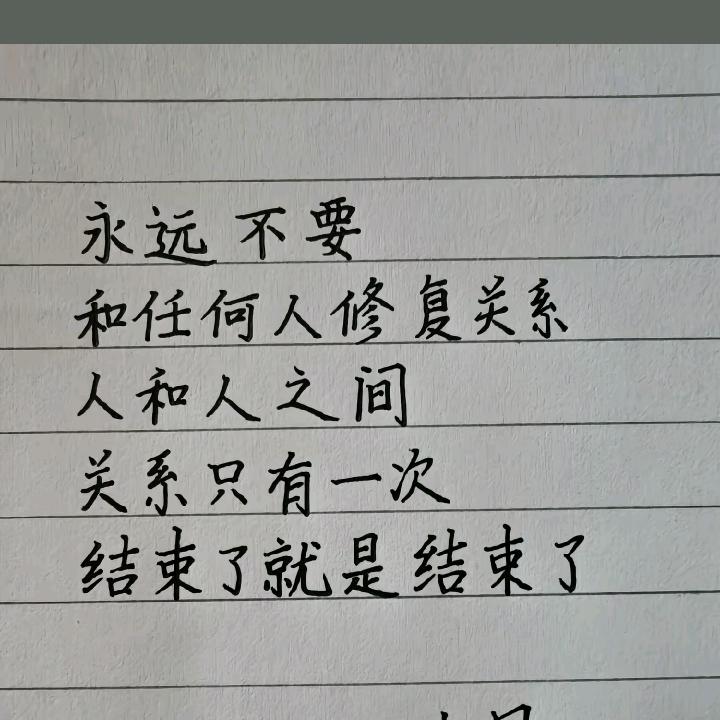 永远不要
和任何人修复关系
人和人之间
关系只有一次
结束了就是结束了